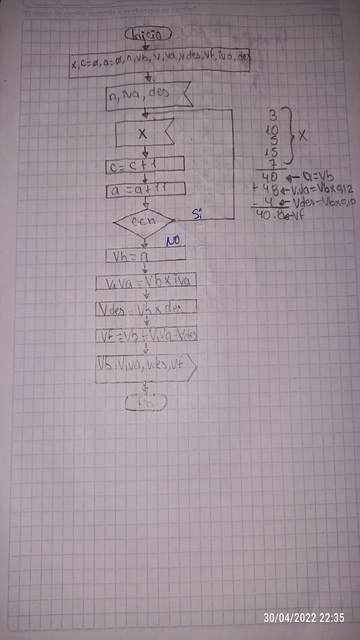 Inicio
x, c=ø, a=ø, n, vb, v, iva, vdes, vf, iva, des
n, iva, des
X
c = c+1
a = a+11
c<n
Si
NO
Vb = a
Viva = Vb x iva
Vdes = Vb x des
Vf = Vb + Viva - Vdes
Vb, Viva, vdes, Vf
Fin
3
10
5
15
7
X
40 ← a=Vb
+ 4.8 ← viva=Vbx0,12
- 4 ← Vdes=Vbx0,10
40.8 ← Vf
30/04/2022 22:35